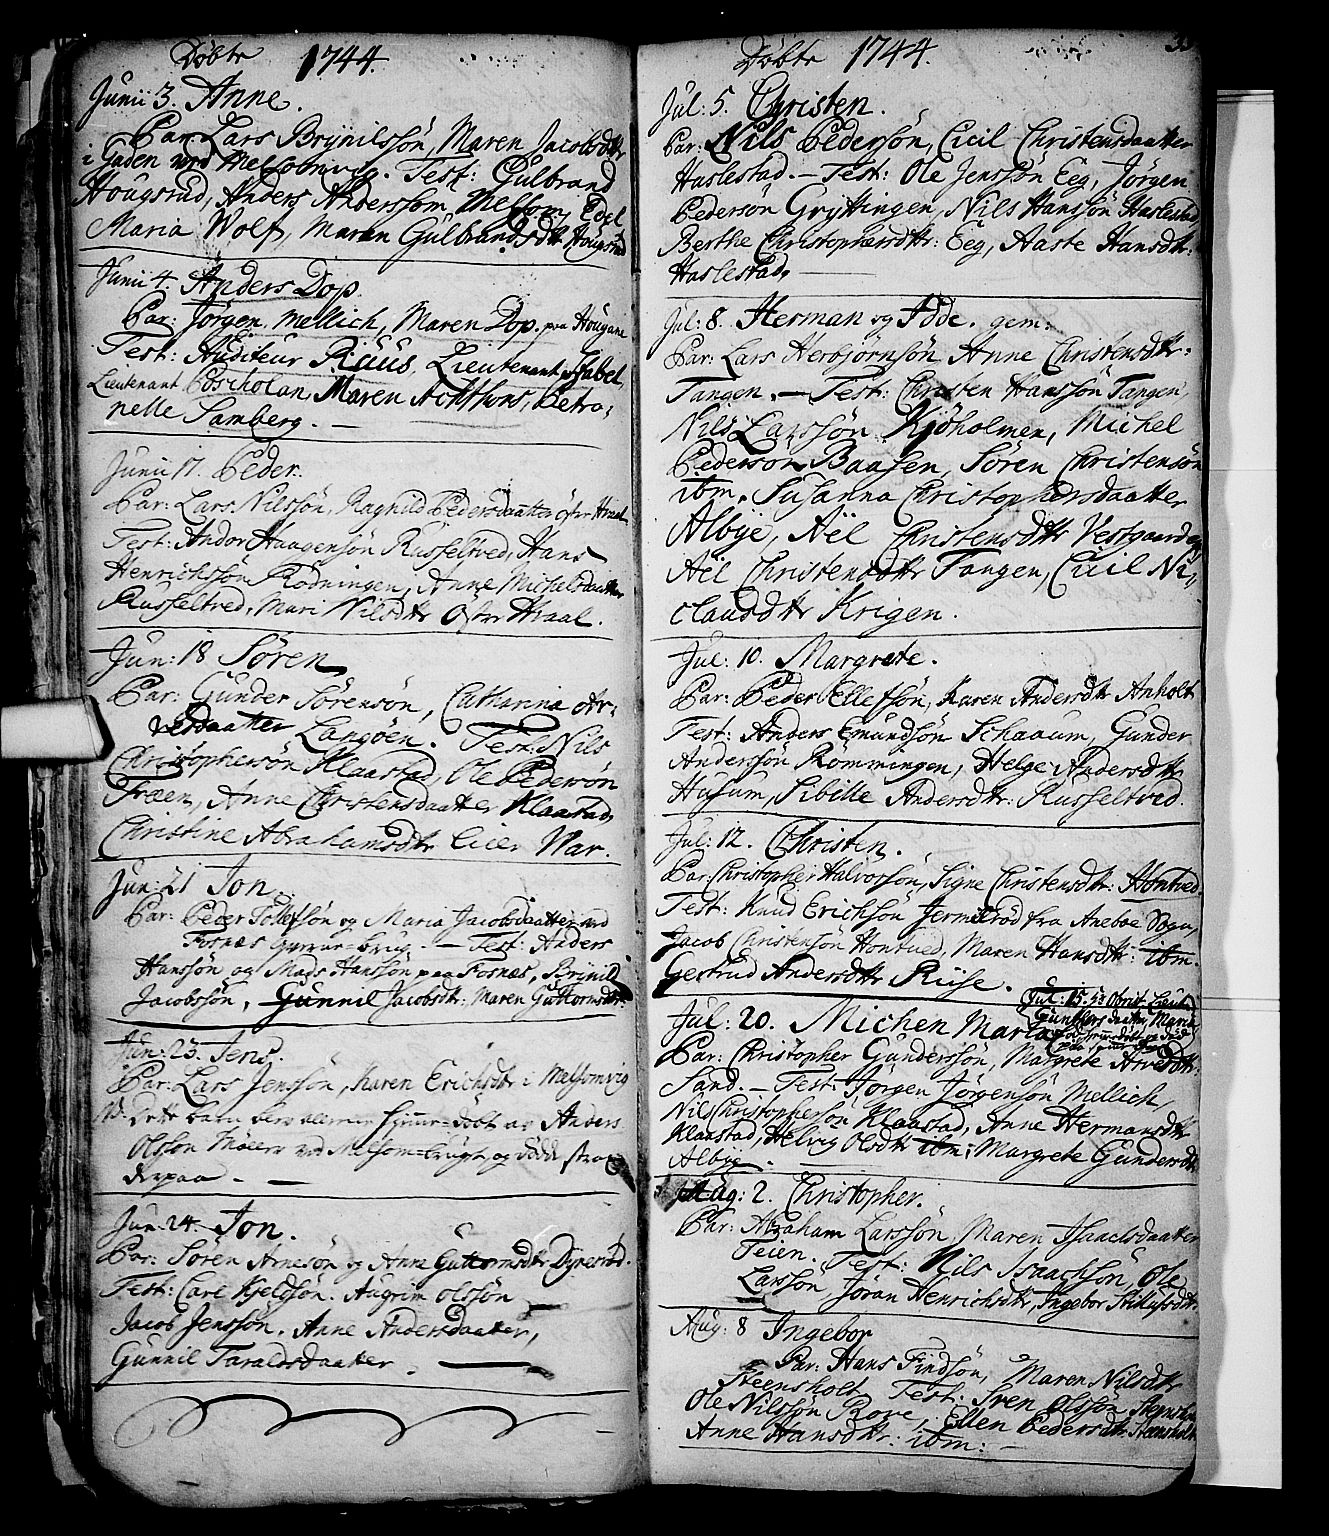 Döbte 1744.
Junii 3. Anne.
Par: Lars Brynilssön, Maren Jacobsdttr
i Gaden ved Melsomvig. Test: Gulbrand
Hougsrud, Anders Anderssön Melsom, Edel
Maria Wolf, Maren Gulbrandsdttr Hougsrud
Junii 4. Anders Dop.
Par: Jörgen Mellich, Maren Dop. paa Hougane
Test: Auditeur Ruus, Lieutenant Isabel,
Lieutenant Poscholan, Maren Achthons, Petro-
nelle Samberg. —
Junii 17. Peder.
Par: Lars Nilssön, Ragnild Pedersdaatter öfre Hraal
Test: Andor Haagensön Russeltved, Hans
Henrichssön Rödningen, Anne Michelsdaatter
Russeltved, Mari Nilsdttr Öfre Hraal.
Jun: 18 Sören
Par: Gunder Sörensön, Catharina Ar-
vesdaatter Langöen. Test: Nils
Christophersön Klaastad, Ole Pedersön
Fræen, Anne Christensdaatter Klaastad,
Christine Abrahamsdttr Eier Nar.
Jun: 21 Jon.
Par: Peder Tollefsön og Maria Jacobsdaatter ved
Fosnæs brug. — Test: Anders
Hanssön og Mads Hanssön paa Fosnæs, Brynild
Jacobssön, Gunnil Jacobsdtr: Maren Guttormsdtr:
Jun: 23. Jens.
Par: Lars Jenssön, Karen Erichsdtr i Melsomvig
NB. Dette barn blev allerene hjemme-döbt av Anders
Olssön Möller ved Melsom-brugt og döde strax
derpaa. —
Jun: 24. Jon.
Par: Sören Arnesön og Anne Guttormsdttr Dyresröd.
Test: Carl Kjeldsön. Augrim Olssön
Jacob Jenssön. Anne Andersdaatter,
Gunnil Taraldsdaatter. —
Döbte 1744.
Jul: 5. Christen.
Par: Nils Pedersön, Cicil Christensdaatter
Haslestad. — Test: Ole Jenssön Eeg, Jörgen
Pedersön Gryttingen, Nils Hansön Haslestad
Berthe Christophersdttr: Eeg, Aaste Hansdtr:
Haslestad. —
Jul: 8. Herman og Odde. gem:
Par: Lars Herbjörnsön, Anne Christensdtr:
Tangen. — Test: Christen Hanssön Tangen
Nils Larssön Kjöholmen, Michel
Pedersön Baasen, Sören Christensön
ibm. Susanna Christophersdaatter
Albye, Aël Christensdtr Vestgaarden
Aël Christensdttr Tangen, Cicil Ni-
clausdttr Krigen.
Jul: 10. Margrete.
Par: Peder Ellefsön, Karen Andersdttr Anholt
Test: Anders Emundsön Schaaum, Gunder
Anderssön Römmingen, Helge Andersdttr
Husum, Sibille Andersdttr: Russeltved.
Jul: 12. Christen.
Par: Christopher Halvorssön, Signe Christensdttr: Hontved.
Test: Knud Erichsön Jermeröd fra Aneboe Sogn,
Jacob Christensön Hontved, Maren Hansdttr: ibm.
Gertrud Andersdttr Ruse.
Jul: 15. Obrist Lieut
Daatter, Maria
Jul: 20. Michen Maria
Par: Christopher Gunderssön, Margrete Arvesdttr:
Sand. — Test: Jörgen Jörgensön Mellich,
Nils Christophersön Klaastad, Anne Hermansdttr
Klaastad, Helvig Olsdttr ibm: Margrete Gundersdtr
Albye. —
Aug: 2. Christopher.
Par: Abraham Larssön, Maren Isaachsdaatter
Teien. Test: Nils Isaachsön, Ole
Larssön, Jöran Henrichsdttr, Ingebor
Aug: 8 Ingebor
Par: Hans Findsön, Maren Nilsdttr
Steensholt Test: Sven Olssön Steensholt
Ole Nilssön Rove, Ellen Pedersdttr Steensholt
Anne Hansdttr: ibm: —